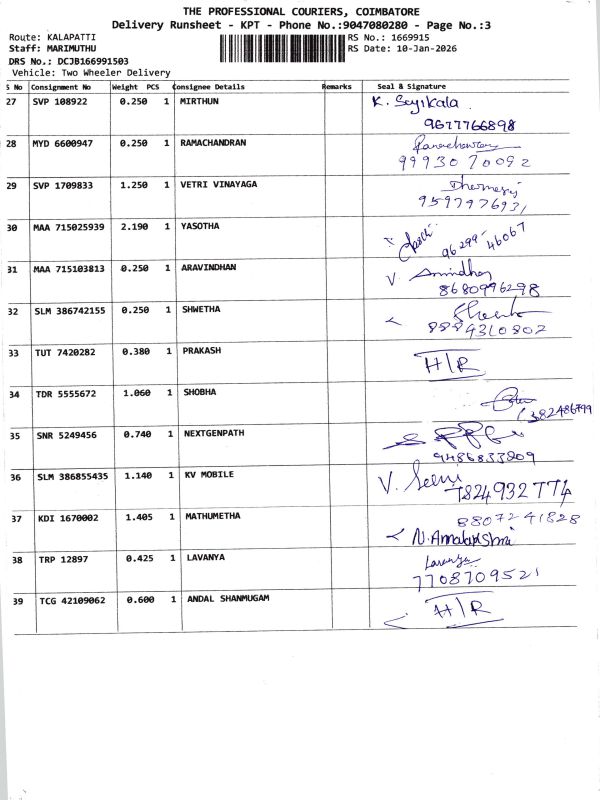 THE PROFESSIONAL COURIERS, COIMBATORE
Delivery Runsheet - KPT - Phone No.:9047080280 - Page No.:3
Route: KALAPATTI
RS No.: 1669915
Staff: MARIMUTHU
RS Date: 10-Jan-2026
DRS No.: DCJB166991503
Vehicle: Two Wheeler Delivery
S No Consignment No Weight PCS Consignee Details Remarks Seal & Signature
27 SVP 108922 0.250 1 MIRTHUN K. Seyikala
9677766898
28 MYD 6600947 0.250 1 RAMACHANDRAN Ramachandran
99930 70092
29 SVP 1709833 1.250 1 VETRI VINAYAGA
9597976931
30 MAA 715025939 2.190 1 YASOTHA
96299 46067
31 MAA 715103813 0.250 1 ARAVINDHAN V. Aravindhan
8680996298
32 SLM 386742155 0.250 1 SHWETHA
8889310802
33 TUT 7420282 0.380 1 PRAKASH H/R
34 TDR 5555672 1.060 1 SHOBHA
35 SNR 5249456 0.740 1 NEXTGENPATH
9486833809
36 SLM 386855435 1.140 1 KV MOBILE V. Seeni
7824932774
37 KDI 1670002 1.405 1 MATHUMETHA 88072 41828
38 TRP 12897 0.425 1 LAVANYA Lavanya
7708709521
39 TCG 42109062 0.600 1 ANDAL SHANMUGAM H/R